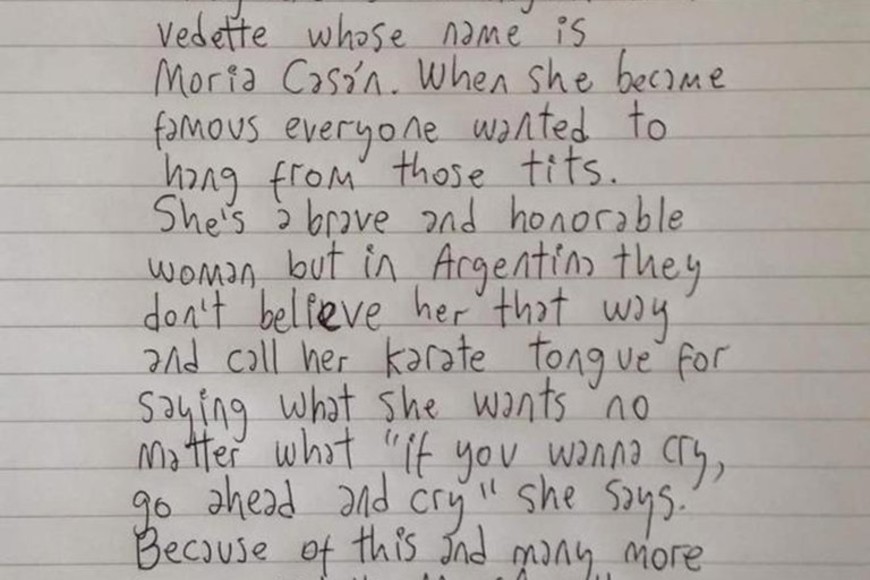 vedette whose name is
Moria Casán. When she became
famous everyone wanted to
hang from those tits.
She's a brave and honorable
woman, but in Argentina they
don't believe her that way
and call her karate tongue for
saying what she wants no
matter what "if you wanna cry,
go ahead and cry" she says.
Because of this and many more